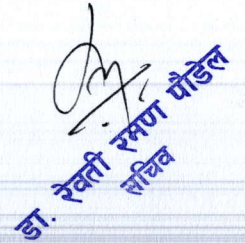 डा. रेवती रमण पौडेल
सचिव